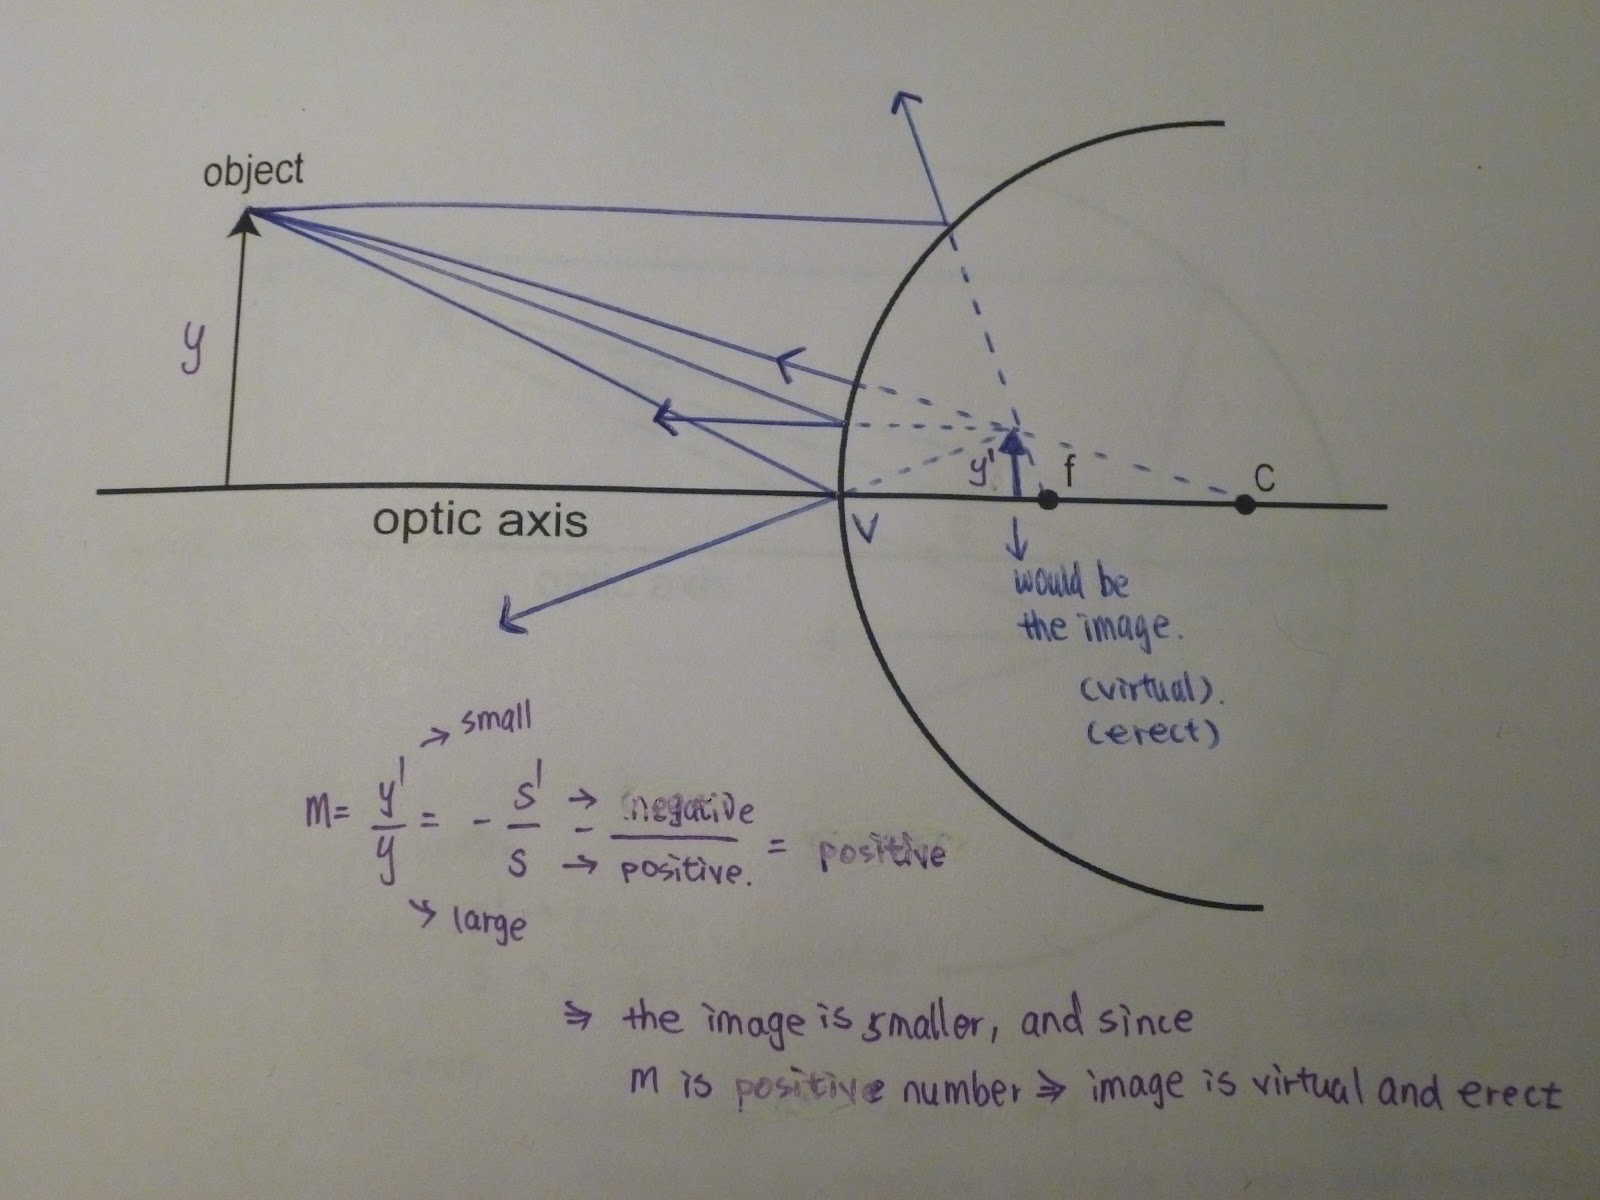 object
y
optic axis
V
y'
f
C
would be
the image.
(virtual).
(erect)
m = y'/y = - s'/s → - negative/positive. = positive
→ small
→ large
⇒ the image is smaller, and since
m is positive number ⇒ image is virtual and erect